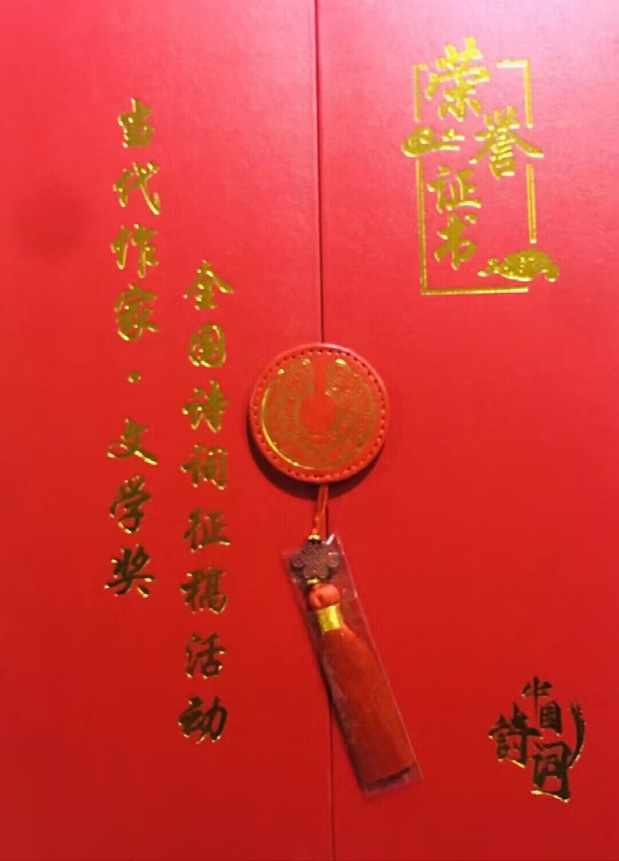 荣誉证书
当代作家·文学奖
全国诗词征稿活动
中国
詩词